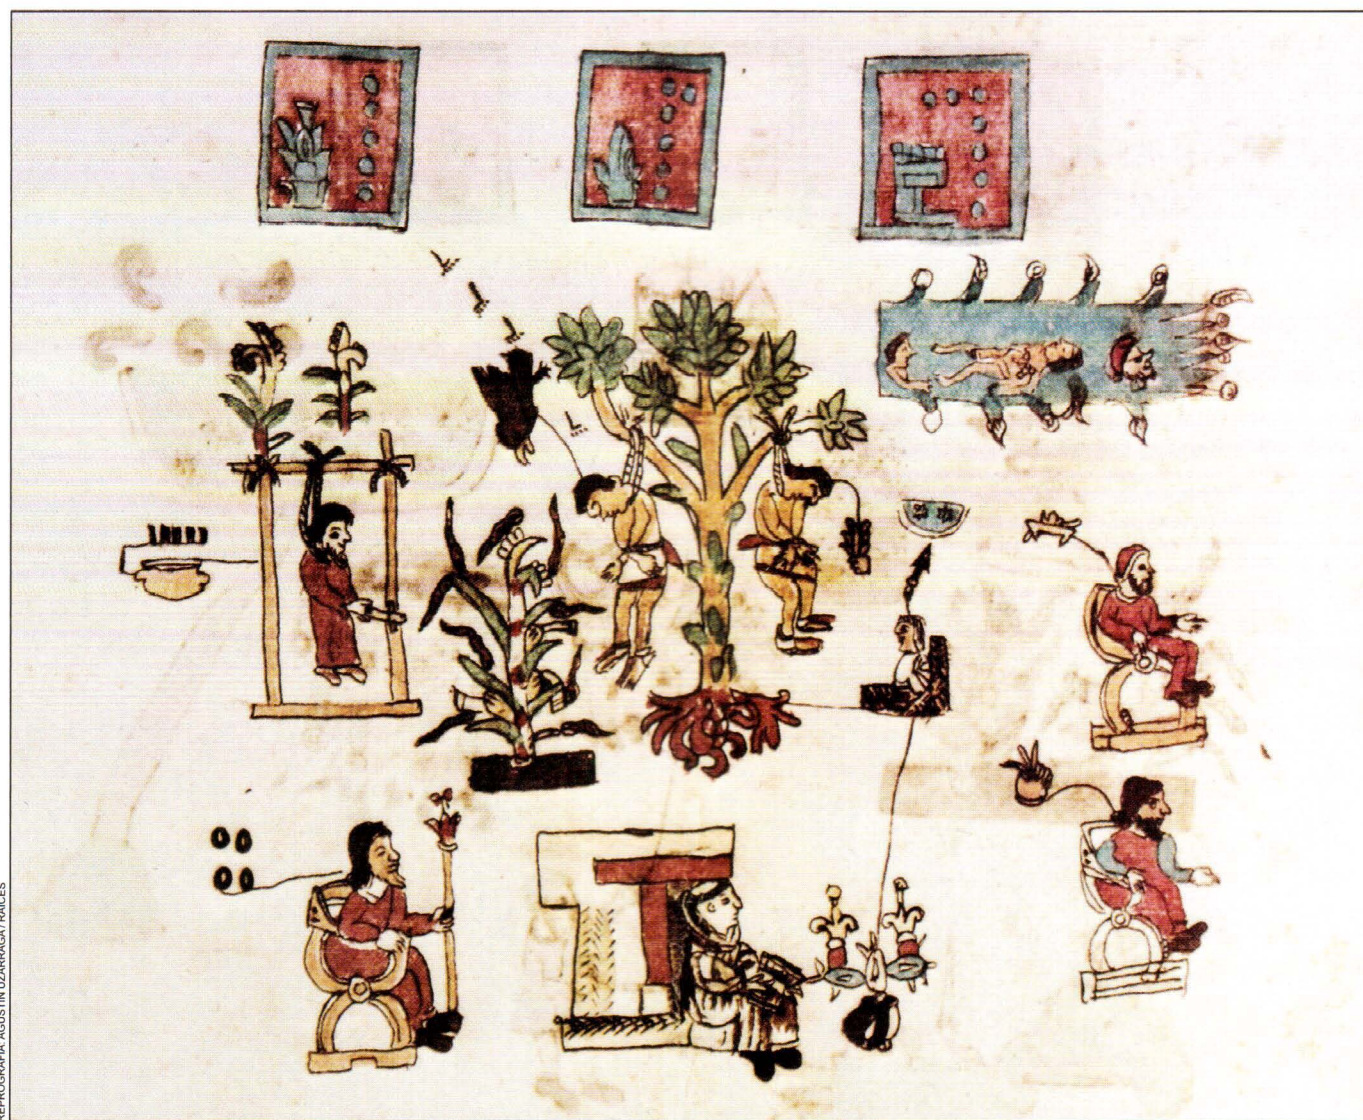 REPROGRAFÍA: AGUSTÍN UZÁRRAGA / RAÍCES